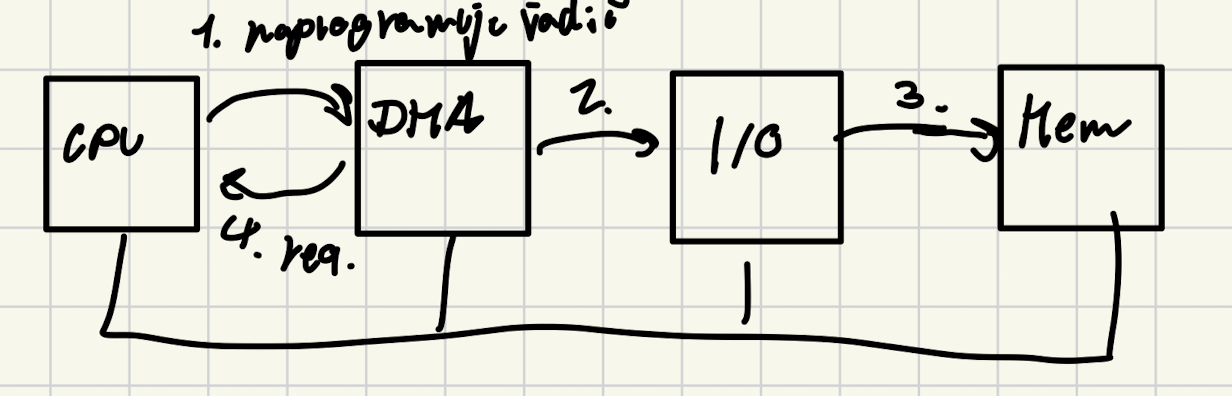 1. naprogramuje řadič
CPU
DMA
2.
I/O
3.
Mem
4. req.